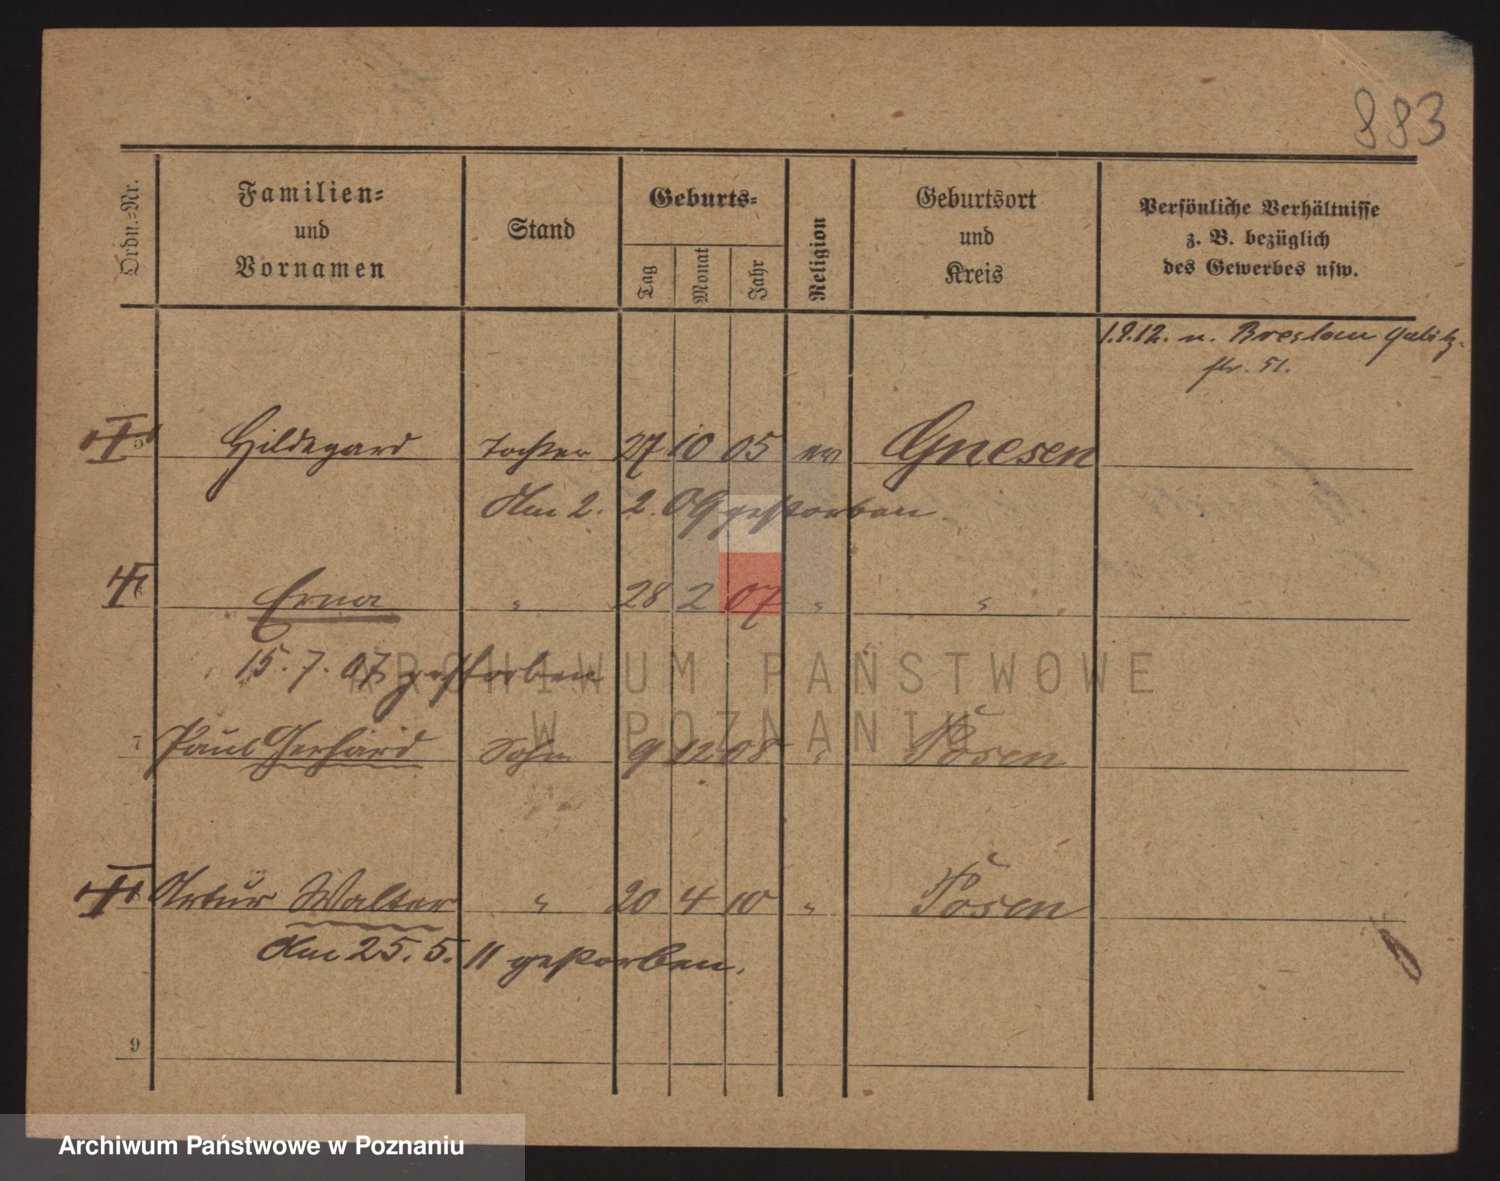 883
Ordn.-Nr. Familien- und Vornamen Stand Geburts- Tag Monat Jahr Religion Geburtsort und Kreis Persönliche Verhältnisse z. B. bezüglich des Gewerbes usw.
n. Breslau
str. 51.
5 Hildegard Tochter 27 10 05 ev Gnesen
Am 2. 2. 09 gestorben
6 Erna " 28 2 07 " "
15. 7. 07 gestorben
ARCHIWUM PAŃSTWOWE
W POZNANIU
7 Paul Gerhard Sohn 9 12 08 " Posen
8 Artur Walter " 20 4 10 " Posen
Am 25. 5. 11 gestorben.
9
Archiwum Państwowe w Poznaniu